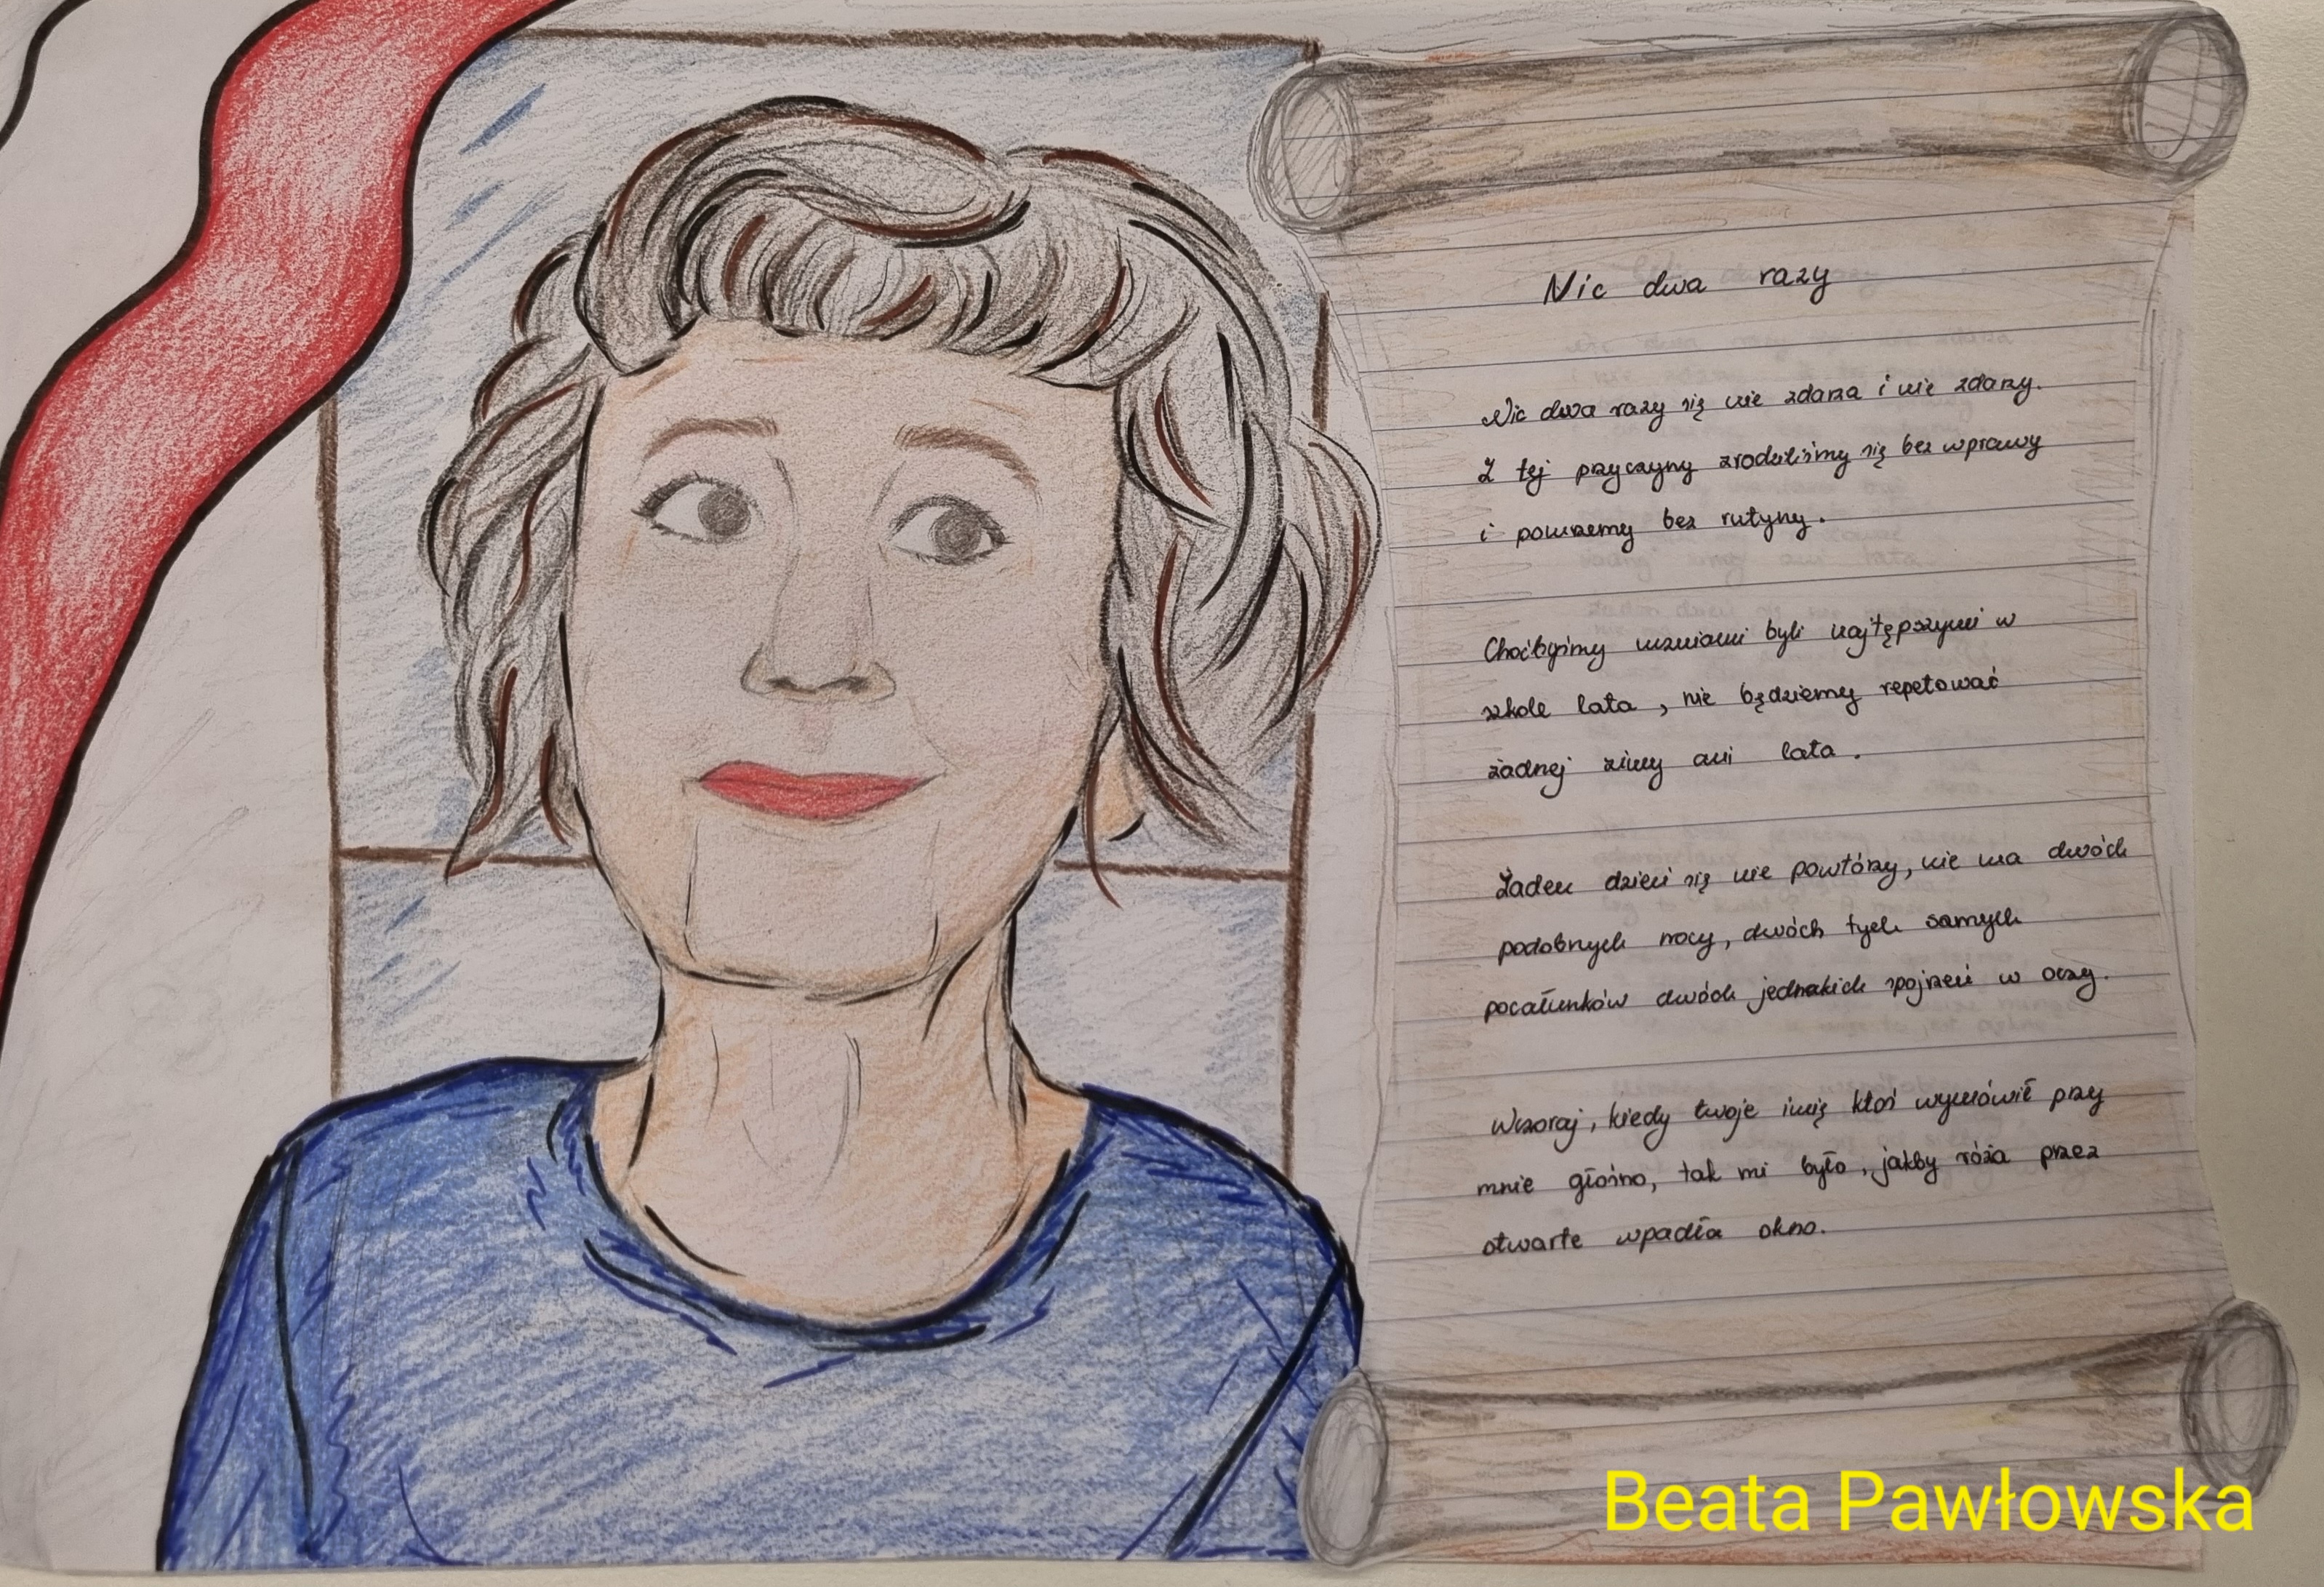 Nic dwa razy
Nic dwa razy się nie zdarza i nie zdarzy.
Z tej przyczyny zrodziliśmy się bez wprawy
i pomrzemy bez rutyny.
Choćbyśmy uczniami byli najtępszymi w
szkole lata, nie będziemy repetować
żadnej zimy ani lata.
Żaden dzień się nie powtórzy, nie ma dwóch
podobnych nocy, dwóch tych samych
pocałunków dwóch jednakich spojrzeń w oczy.
Wczoraj, kiedy twoje imię ktoś wymówił przy
mnie głośno, tak mi było, jakby róża przez
otwarte wpadła okno.
Beata Pawłowska